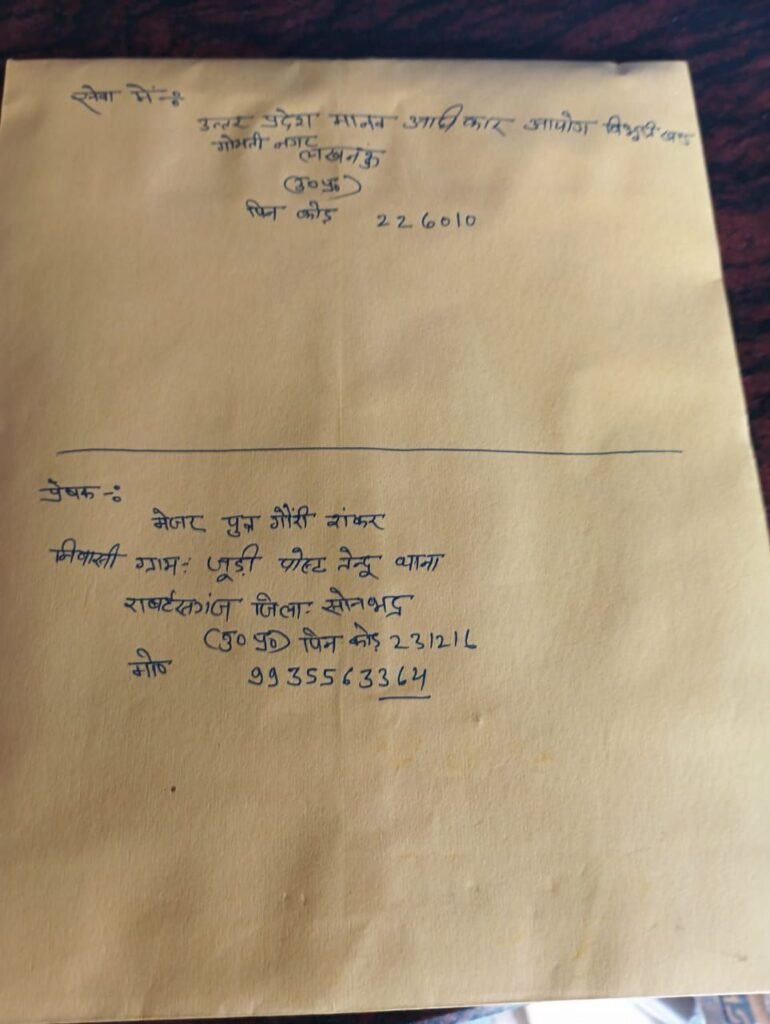 सेवा में :-
उत्तर प्रदेश मानव आधीकार आयोग विभूति खण्ड
गोमती नगर
लखनऊ
(उ० प्र०)
पिन कोड़ 226010
प्रेषक -:
मेजर पुत्र गौरी शंकर
निवासी ग्राम: जूड़ी पोस्ट तेन्दू थाना
राबर्टसगंज जिला: सोनभद्र
(उ० प्र०) पिन कोड़ 231216
मो० 9935563364